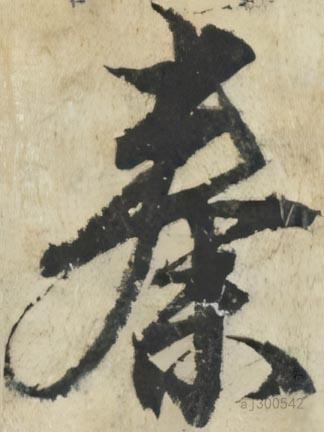 秦
aj300542